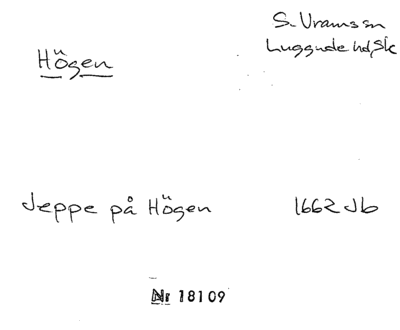 Högen
S. Vram sn
Luggude hd, Sk
Jeppe på Högen 1662 Jb
Nr 18109